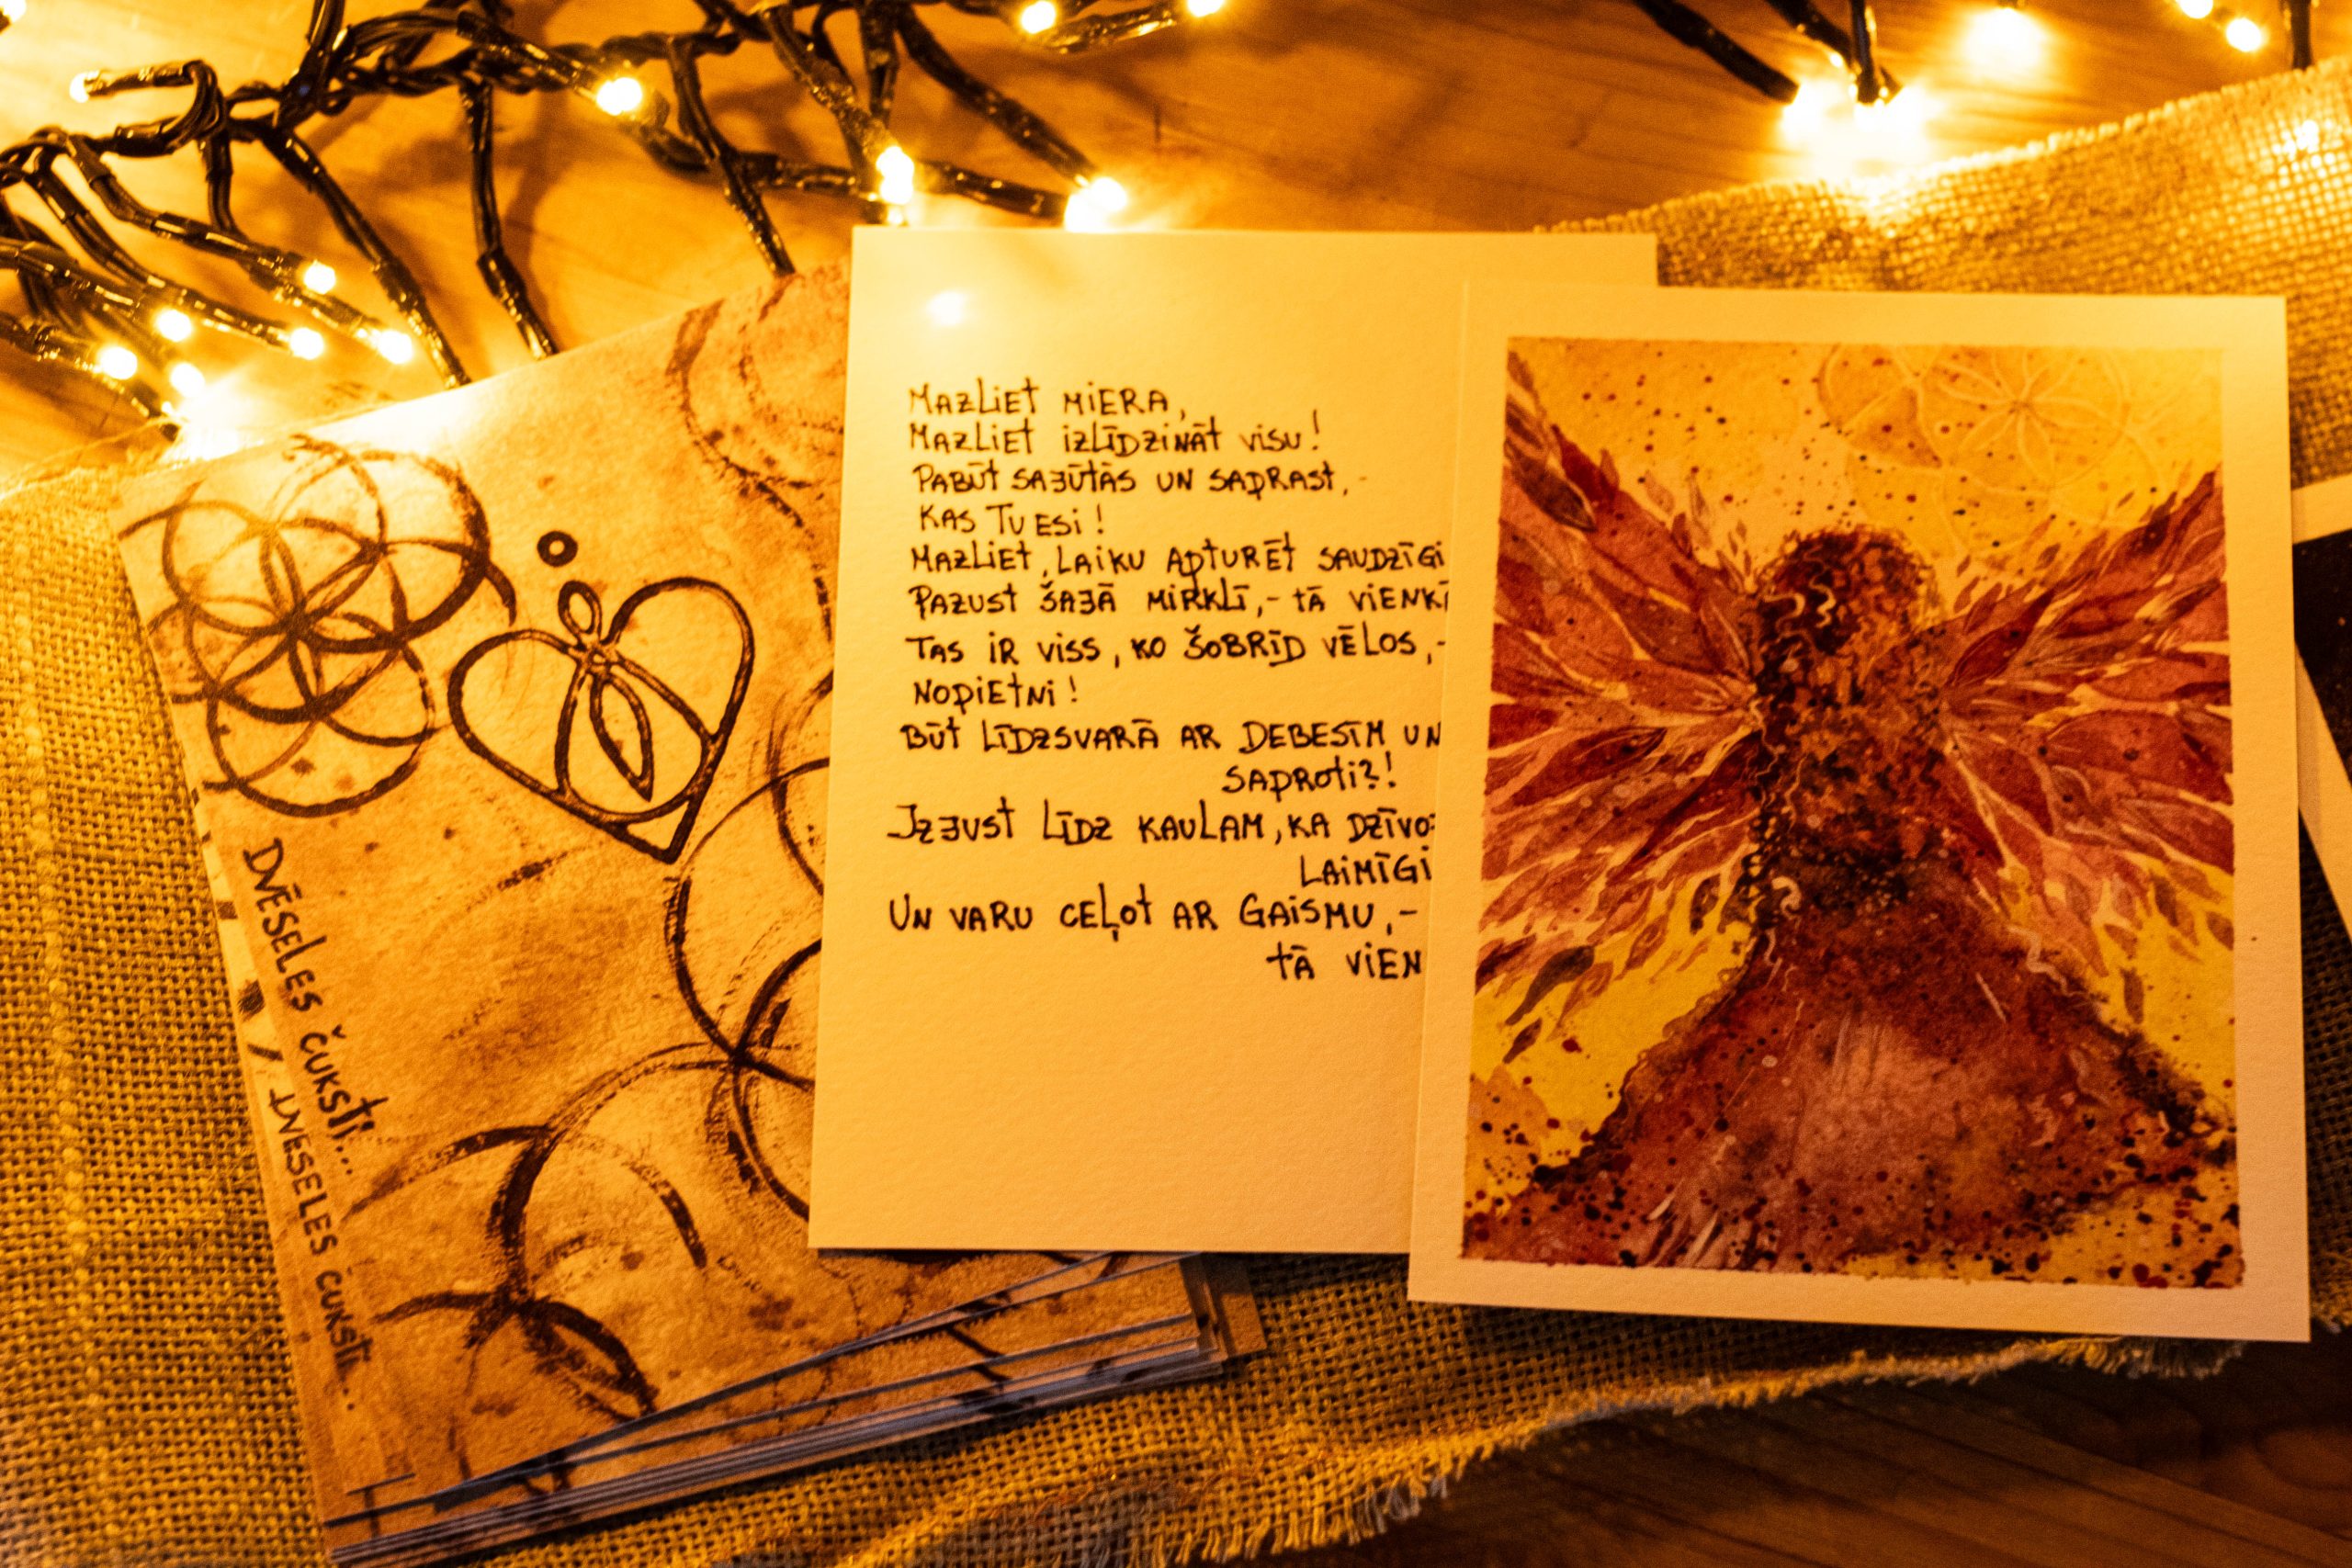 DVĒSELES ČUKSTI...
DVĒSELES ČUKSTI...
MAZLIET MIERA,
MAZLIET IZLĪDZINĀT VISU!
PABŪT SAJŪTĀS UN SAPRAST,-
KAS TU ESI!
MAZLIET, LAIKU APTURĒT SAUDZĪGI
PAZUST ŠAJĀ MIRKLĪ,- TĀ VIENKĀ
TAS IR VISS, KO ŠOBRĪD VĒLOS,-
NOPIETNI!
BŪT LĪDZSVARĀ AR DEBESĪM UN
SAPROTI?!
IZJUST LĪDZ KAULAM, KA DZĪVO
LAIMĪGI
UN VARU CEĻOT AR GAISMU,-
TĀ VIEN